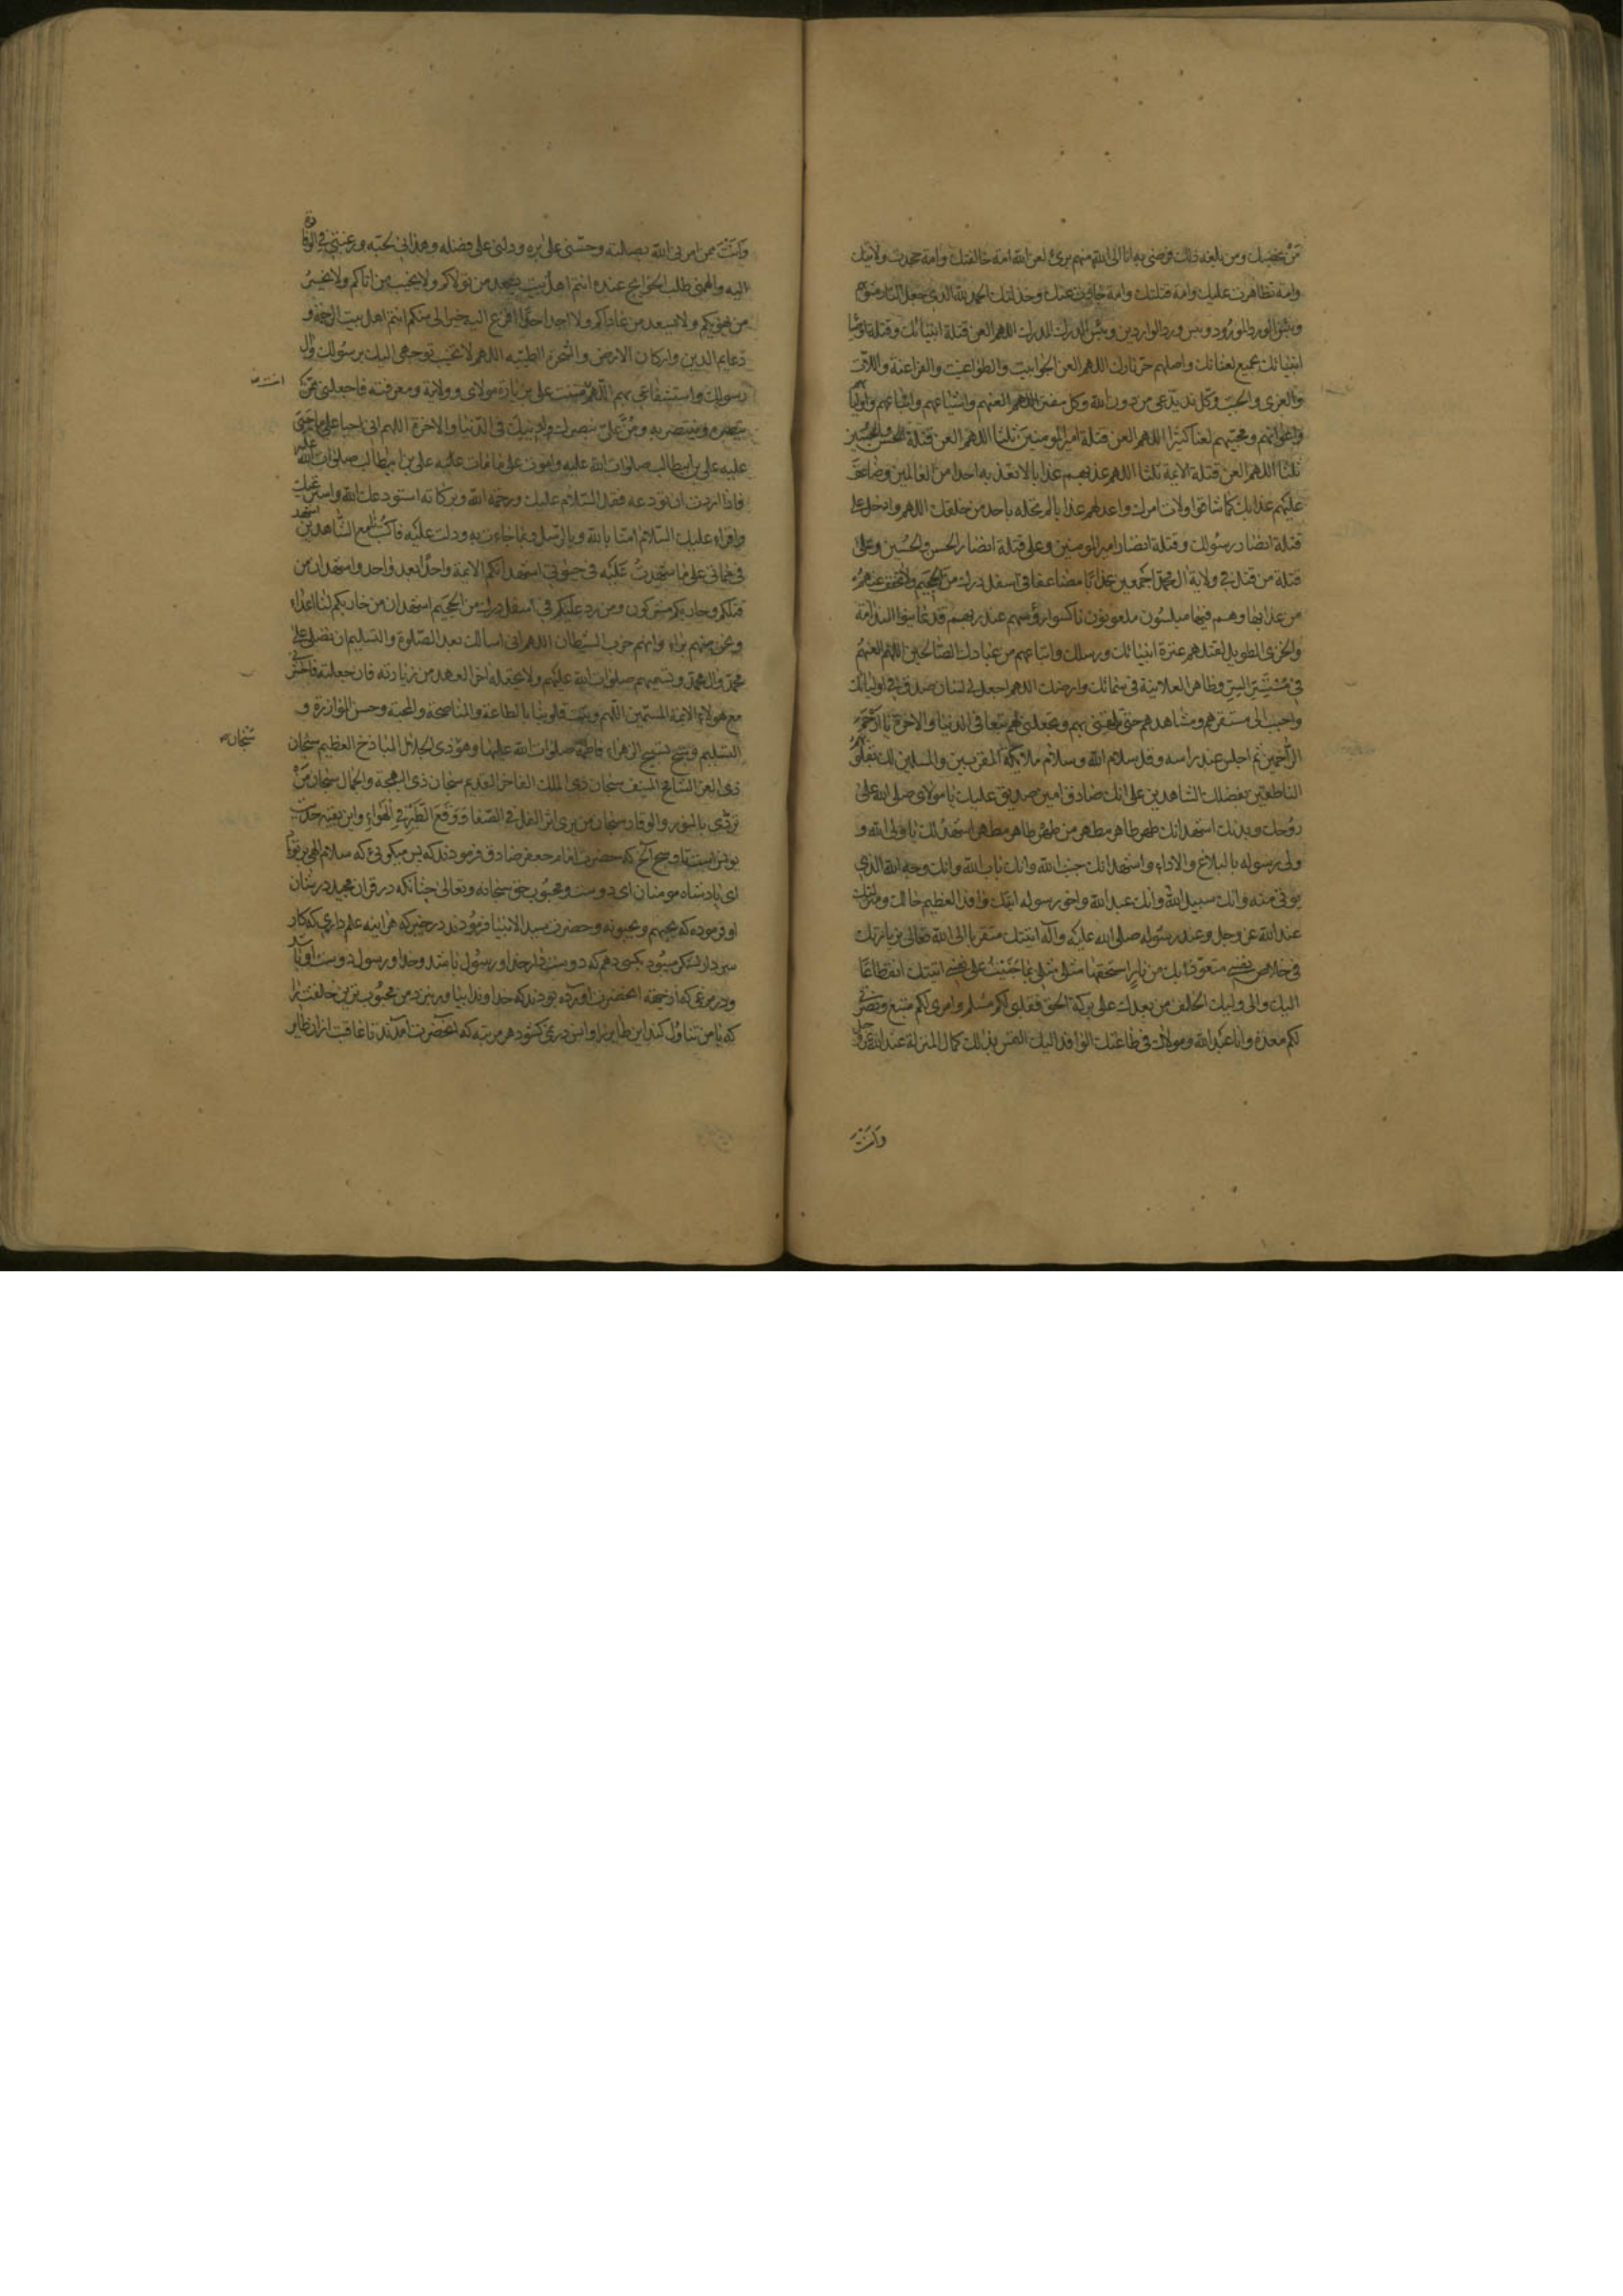 من غصبك ومن بلغه ذلك فرضي به انا الى الله منهم برئ لعن الله امة خالفتك وامة جحدت ولايتك
وامة تظاهرت عليك وامة قتلتك وامة حادت عنك وخذلتك الحمد لله الذي جعل النار مثويهم
وبئس الورد المورود وبئس ورد الواردين وبئس الدرك المدرك اللهم العن قتلة انبيائك وقتلة اوصيا
انبيائك بجميع لعناتك واصلهم حر نارك اللهم العن الجوابيت والطواغيت والفراعنة واللات
والعزى والجبت وكل ند يدعى من دون الله وكل مفتر اللهم العنهم واشياعهم واتباعهم واولياءهم
واعوانهم ومحبيهم لعنا كثيرا اللهم العن قتلة امير المومنين ثلثا اللهم العن قتلة الحسن والحسين
ثلثا اللهم العن قتلة الائمة ثلثا اللهم عذبهم عذابا لا تعذب به احدا من العالمين وضاعف
عليهم عذابك كما شاقوا ولاة امرك واعد لهم عذابا لم تحله باحد من خلقك اللهم وادخل على
قتلة انصار رسولك وقتلة انصار امير المومنين وعلى قتلة انصار الحسن والحسين وعلى
قتلة من قتل في ولاية ال محمد اجمعين عذابا مضاعفا في اسفل درك من الجحيم ولا تخفف عنهم
من عذابها وهم فيها مبلسون ملعونون ناكسوا رؤسهم عند ربهم قد عاينوا الندامة
والخزى الطويل لقتلهم عترة انبيائك ورسلك واتباعهم من عبادك الصالحين اللهم العنهم
في مستسر السر وظاهر العلانية في سمائك وارضك اللهم اجعل لي لسان صدق في اوليائك
واحبب الى مستقرهم ومشاهدهم حتى تلحقني بهم وتجعلني لهم تبعا في الدنيا والاخرة يا ارحم
الراحمين ثم اجلس عند راسه وقل سلام الله وسلام ملائكته المقربين والمسلمين لك بقلوبهم
الناطقين بفضلك الشاهدين على انك صادق امين صديق عليك يا مولاى صلى الله على
روحك وبدنك اشهد انك طهر طاهر مطهر من طهر طاهر مطهر اشهد لك يا ولى الله و
ولى رسوله بالبلاغ والاداء واشهد انك جنب الله وانك باب الله وانك وجه الله الذي
يوتى منه وانك سبيل الله وانك عبد الله واخو رسوله اتيتك وافدا لعظيم حالك ومنزلتك
عند الله عز وجل وعند رسوله صلى الله عليه وآله اتيتك متقربا الى الله تعالى بزيارتك
في خلاص نفسي متعوذا بك من نار استحقها مثلى بما جنيت على نفسي اتيتك انقطاعا
اليك والى وليك الخلف من بعدك على بركة الحق فقلبى لكم مسلم وامرى لكم متبع ونصرتي
لكم معدة وانا عبد الله ومولاك في طاعتك الوافد اليك التمس بذلك كمال المنزلة عند الله عز وجل
وانت
وانت ممن امرنى الله بصلته وحثنى على بره ودلنى على فضله وهدانى لحبه ورغبني في الوفادة
اليه والهمنى طلب الحوائج عنده انتم اهل بيت يسعد من تولاكم ولا يخيب من اتاكم ولا يخسر
من يهويكم ولا يسعد من عاداكم ولا اجد احدا افزع اليه خيرا لى منكم انتم اهل بيت الرحمة و
دعايم الدين واركان الارض والشجرة الطيبه اللهم لا تخيب توجهى اليك برسولك وال
رسولك واستشفاعى بهم اللهم مننت على بزيارة مولاى وولايته ومعرفته فاجعلني ممن
انت
ينصره وينتصر به ومن على بنصرك لدينك في الدنيا والاخرة اللهم انى احيا على ما حيى
عليه على بن ابيطالب صلوات الله عليه واموت على ما مات عليه على بن ابيطالب صلوات الله عليه
فاذا اردت ان تودعه فقل السلام عليك ورحمة الله وبركاته استودعك الله واسترعيك
واقراء عليك السلام امنا بالله وبالرسل وبما جاءت به ودلت عليه فاكتبنا مع الشاهدين اشهد
في مماتى على ما شهدت عليه في حيوتى اشهد انكم الائمة واحدا بعد واحد واشهد ان من
قتلكم وحاربكم مشركون ومن رد عليكم في اسفل درك من الجحيم اشهد ان من حاربكم لنا اعداء
ونحن منهم براء وانهم حزب الشيطان اللهم انى اسالك بعد الصلوة والتسليم ان تصلى على
محمد وال محمد وتسميهم صلوات الله عليهم ولا تجعله اخر العهد من زيارته فان جعلته فاحشرني
مع هولاء الائمة المسمين اللهم وثبت قلوبنا بالطاعة والمناصحة والمحبة وحسن الموازرة و
التسليم وسبح تسبيح الزهراء فاطمة صلوات الله عليها وهو ذى الجلال الباذخ العظيم سبحان
سبحان
ذى العز الشامخ المنيف سبحان ذى الملك الفاخر القديم سبحان ذى البهجة والجمال سبحان من
تردى بالنور والوقار سبحان من يرى اثر النمل في الصفا ووقع الطير في الهواء واين بقيه حديث
يونس است كه حضرت امام جعفر صادق فرمودند كه پس ميكوئى كه سلام الهى بر تو
اى پادشاه مومنان اى دوست ومحبوب حق سبحانه وتعالى چنانكه در قران مجيد در شان
او فرموده كه يحبهم ويحبونه وحضرت سيد الانبيا فرمودند در خيبر كه هر اينه علم دارى كه كار
سردار لشكر ميبود بكسى دهم كه دوست دار خدا ورسول باشد وخدا ورسول دوست او باشد
ودر مرغى كه از جهة انحضرت اورده بودند كه خداوندا بياور نزد من محبوب ترين خلقت را
كه با من تناول كند اين طاير را وانس در نمى كشود هر مرتبه كه انحضرت آمدند تا عاقبت ازان طاير